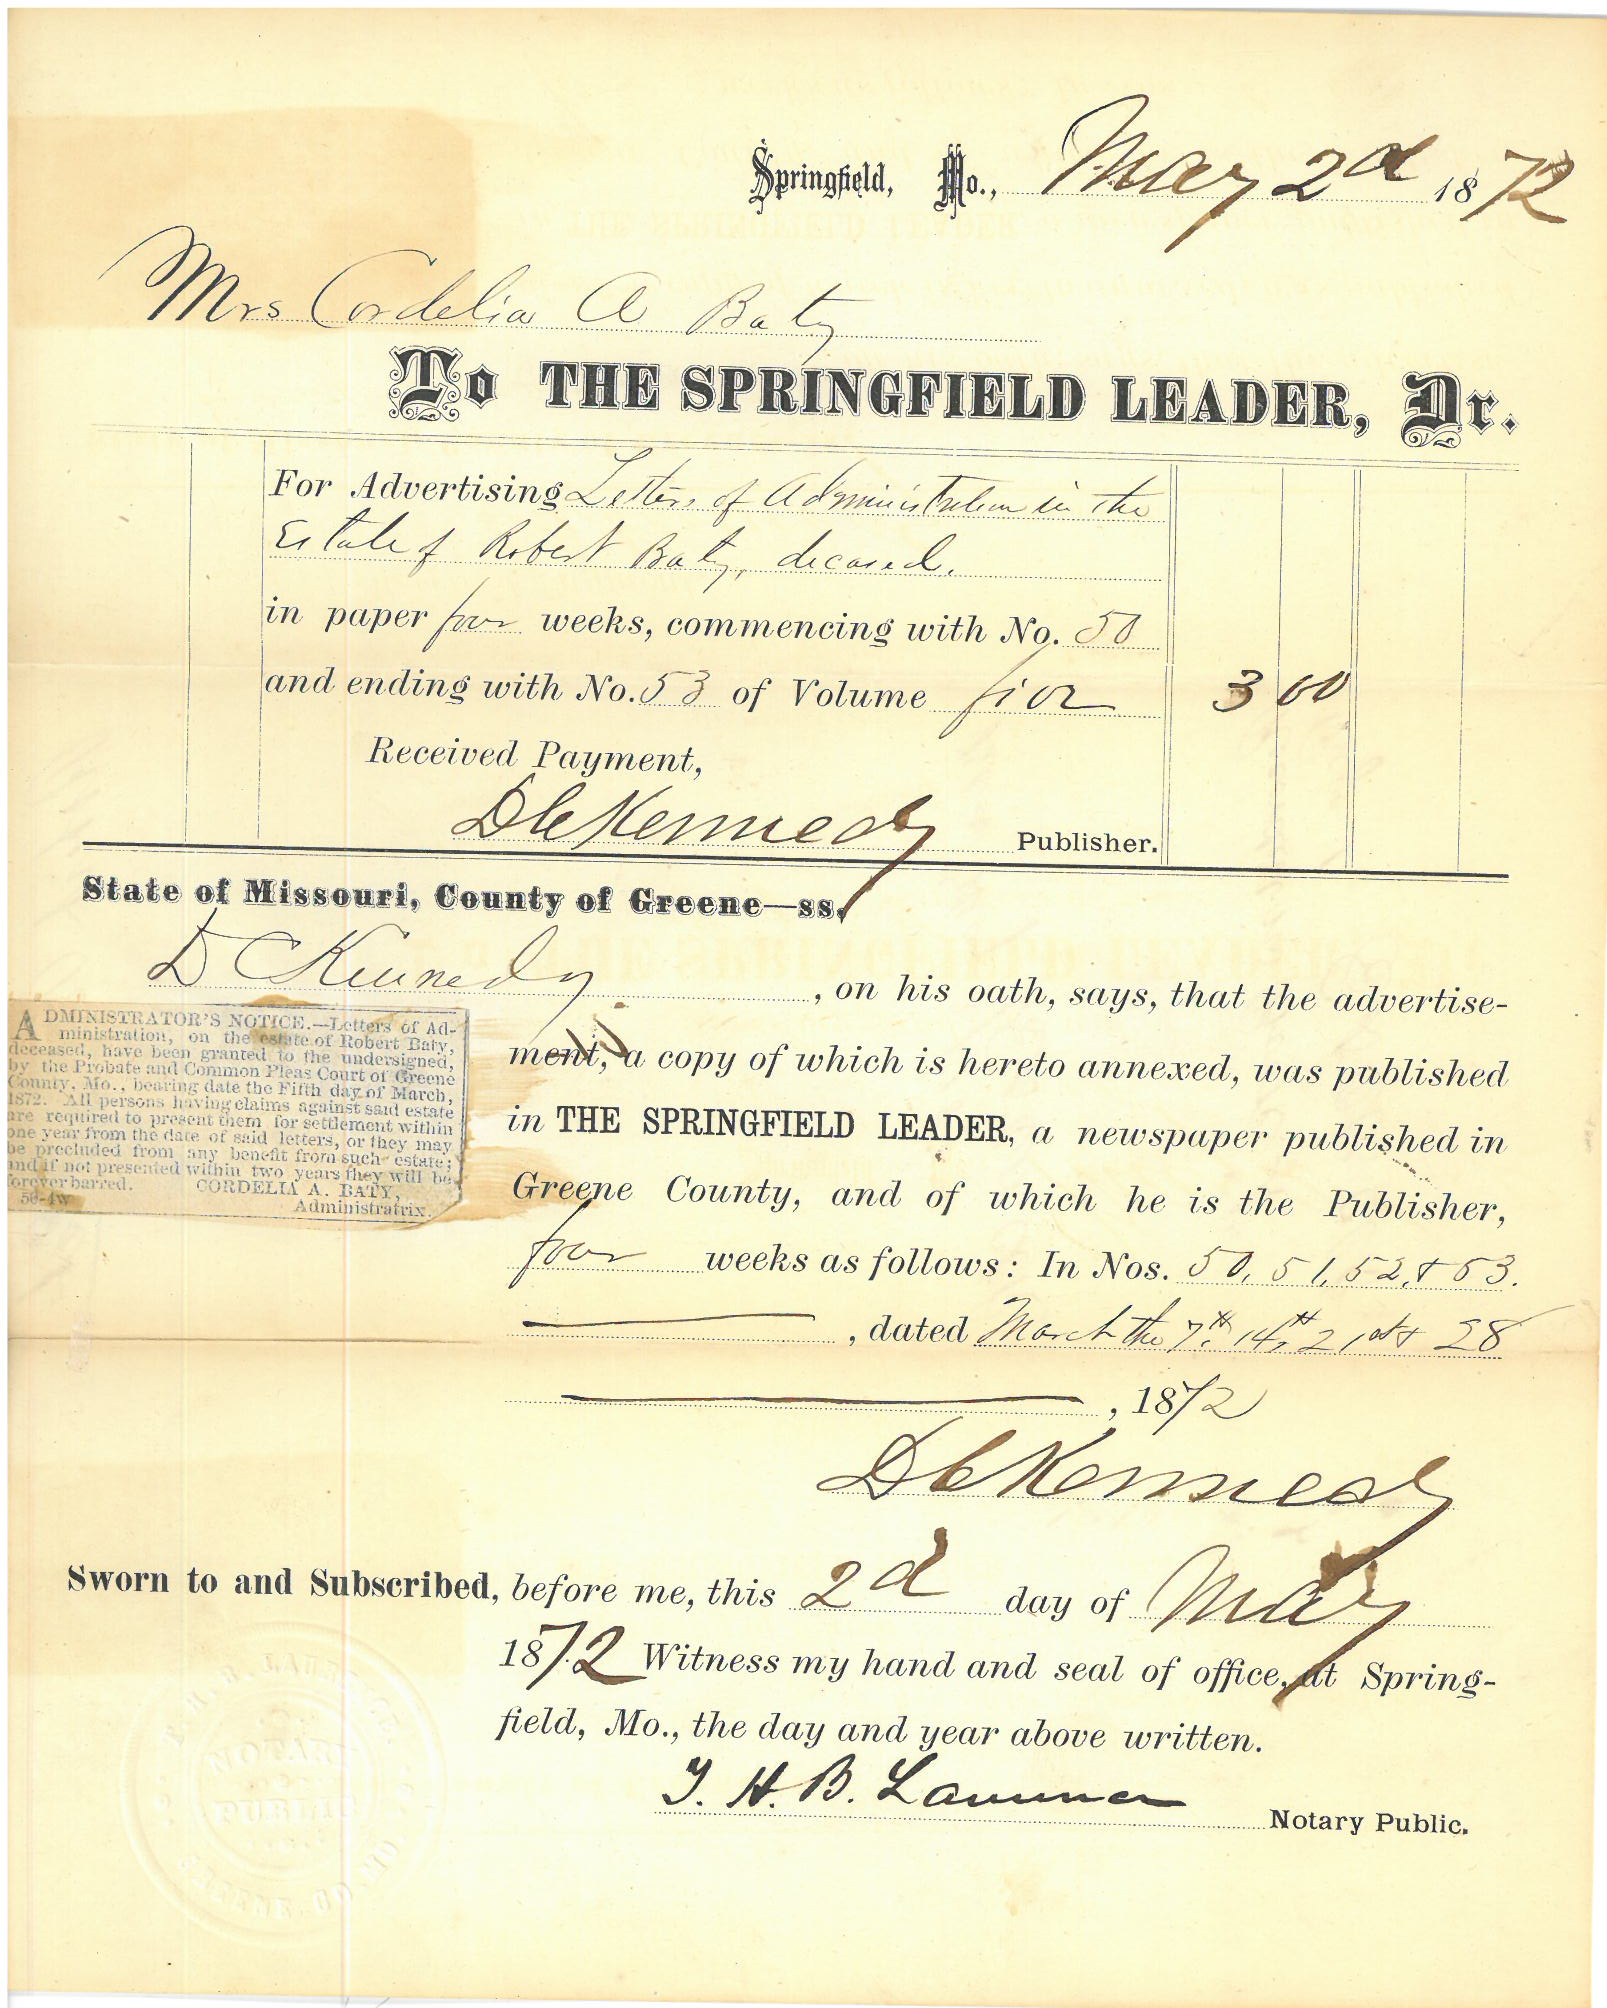 Springfield, Mo., May 2d 1872
Mrs Cordelia A Baty
To THE SPRINGFIELD LEADER, Dr.
For Advertising Letters of Administration in the
Estate of Robert Baty, deceased.
in paper four weeks, commencing with No. 50
and ending with No. 53 of Volume five 3 00
Received Payment,
D C Kennedy Publisher.
State of Missouri, County of Greene—ss.
D C Kennedy, on his oath, says, that the advertise-
ment, a copy of which is hereto annexed, was published
in THE SPRINGFIELD LEADER, a newspaper published in
Greene County, and of which he is the Publisher,
four weeks as follows: In Nos. 50, 51, 52, & 53.
, dated March the 7th, 14th, 21st & 28
, 1872
D C Kennedy
ADMINISTRATOR'S NOTICE.—Letters of Ad-
ministration, on the estate of Robert Baty,
deceased, have been granted to the undersigned,
by the Probate and Common Pleas Court of Greene
County, Mo., bearing date the Fifth day of March,
1872. All persons having claims against said estate
are required to present them for settlement within
one year from the date of said letters, or they may
be precluded from any benefit from such estate;
and if not presented within two years they will be
forever barred. CORDELIA A. BATY,
50-4w Administratrix.
Sworn to and Subscribed, before me, this 2d day of May
1872 Witness my hand and seal of office, at Spring-
field, Mo., the day and year above written.
T. H. B. Lawrence Notary Public.
NOTARY
PUBLIC
GREENE CO. MO